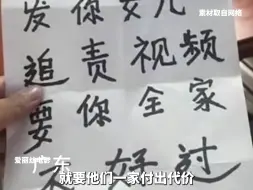 素材取自网络
发你女儿
追责视频
要你全家
不好过
广东
就要他们一家付出代价